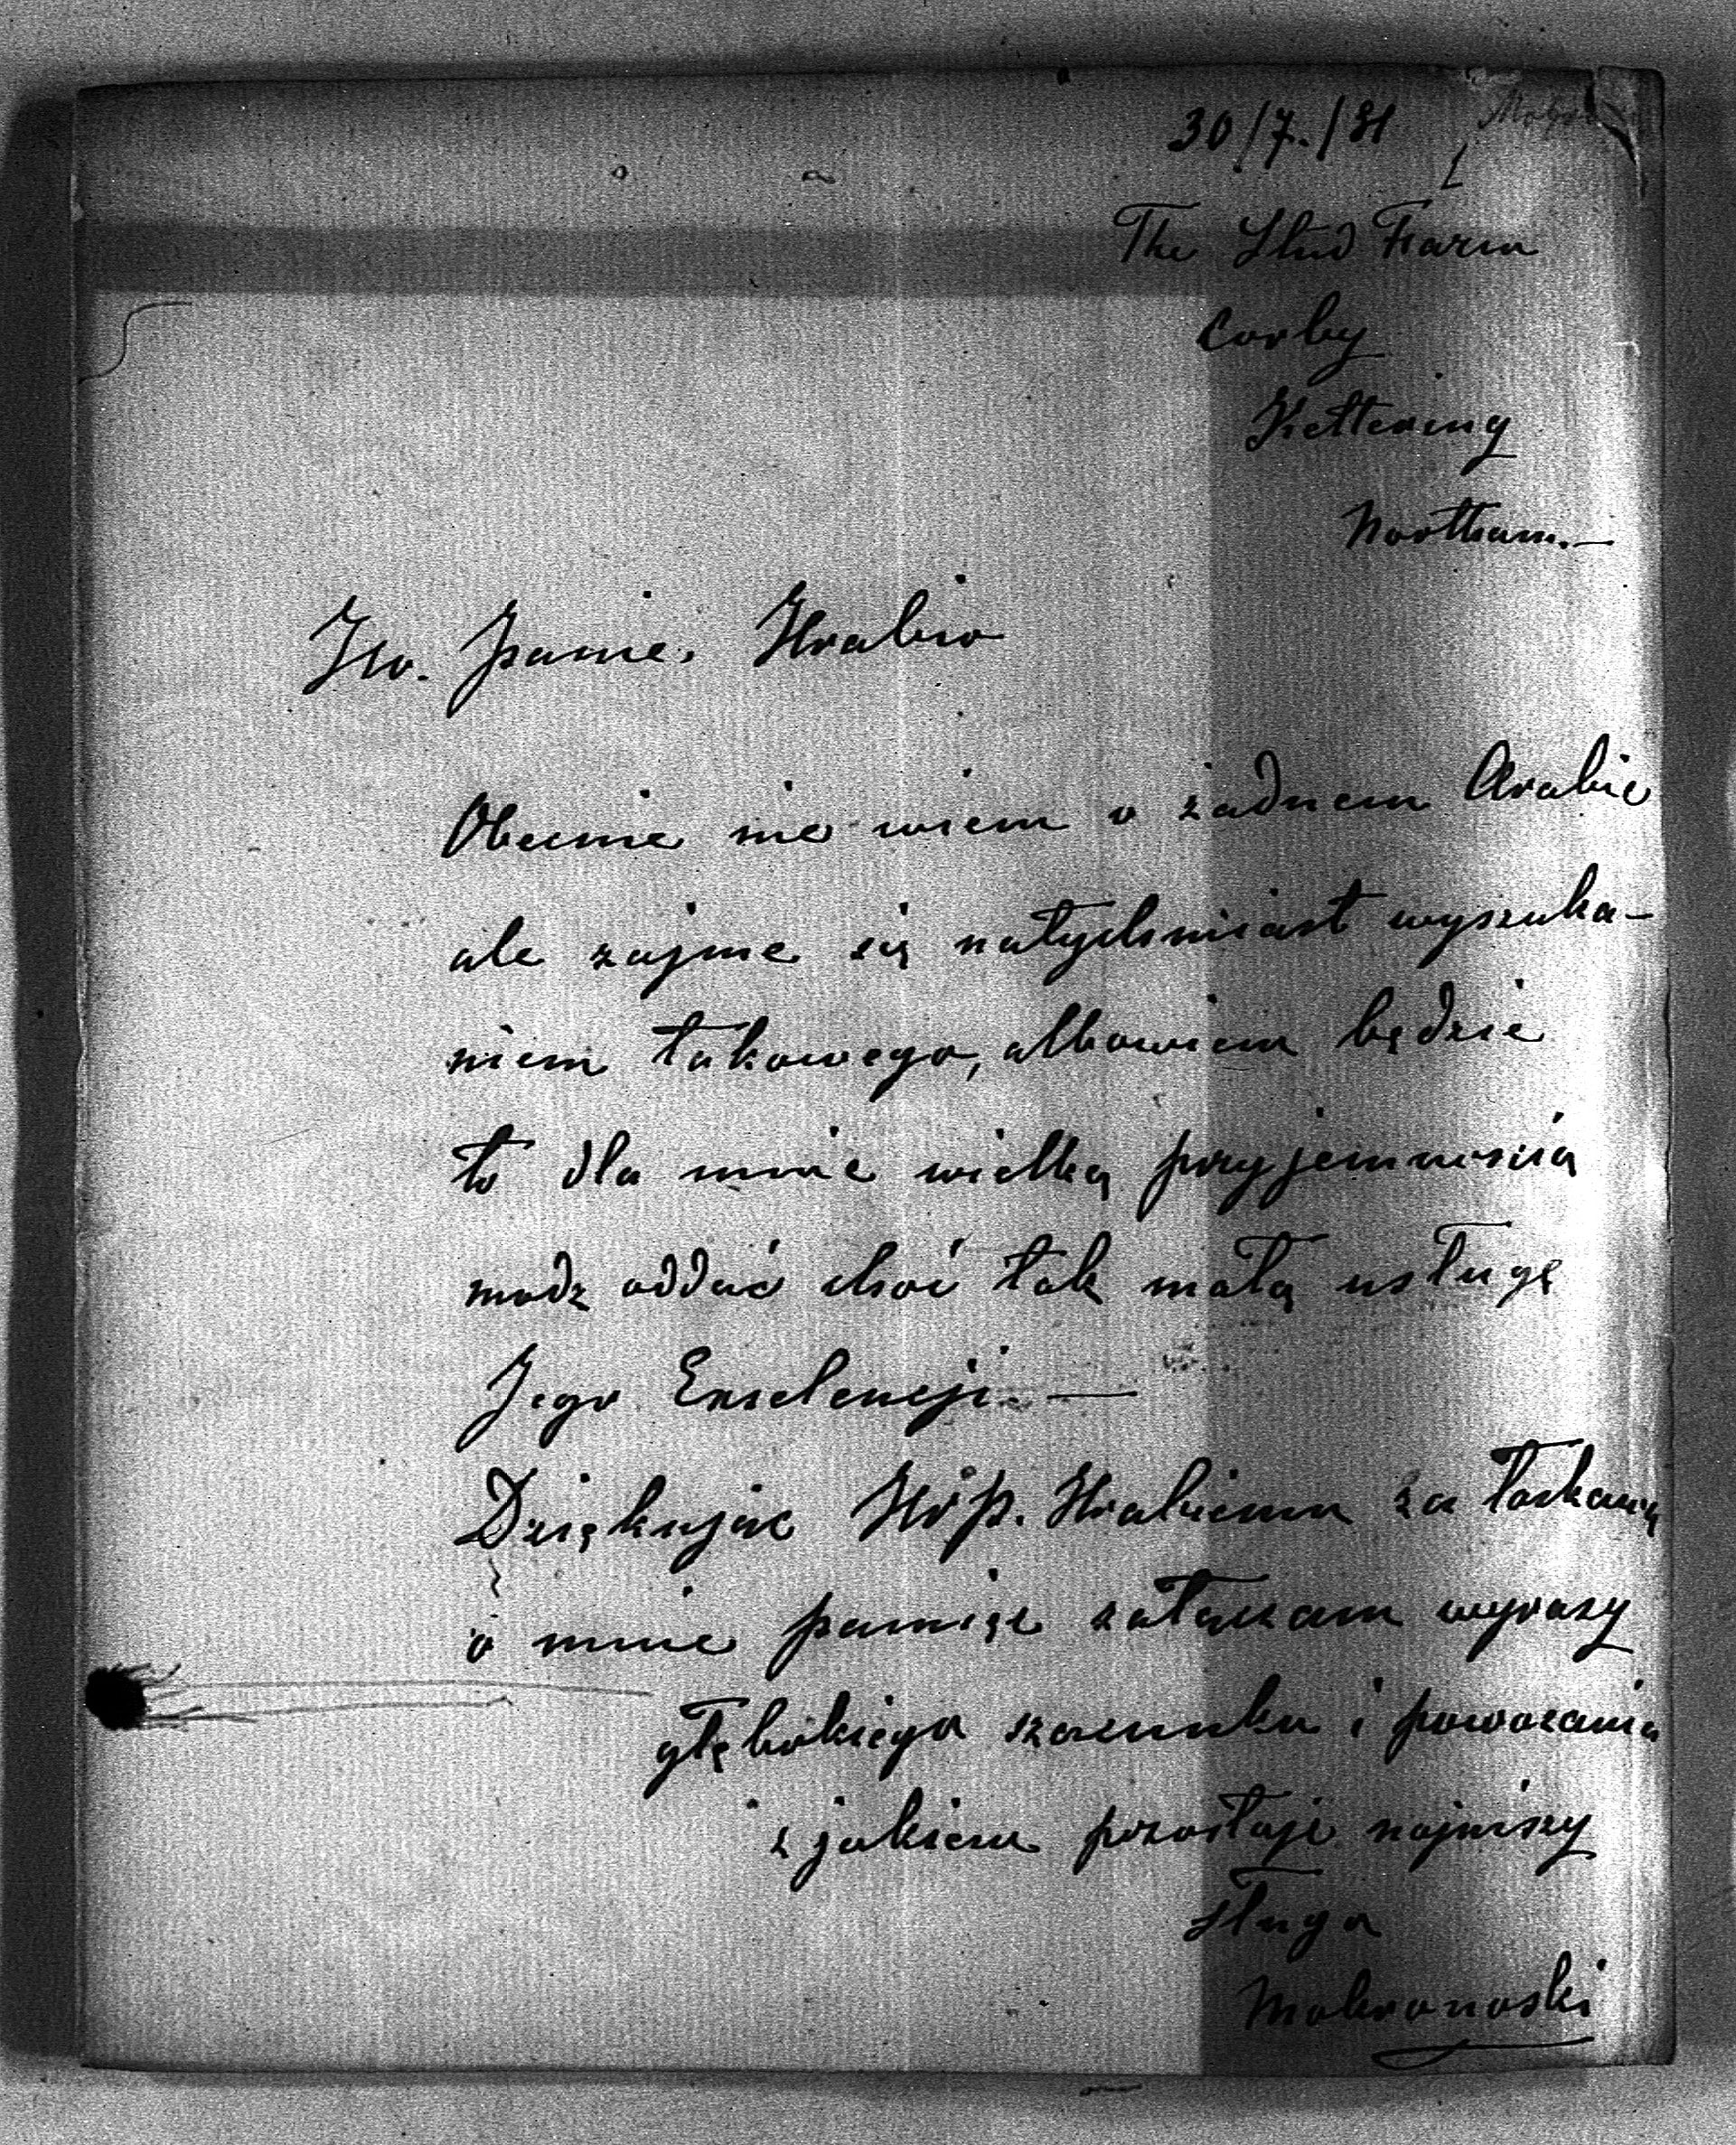 30/7./81
The Stud Farm
Corby
Kettering
Northam.—
Jw. Panie. Hrabio
Obecnie nie wiem o żadnem Arabie
ale zajme się natychmiast wyszuka-
niem takowego, albowiem będzie
to dla mnie wielką przyjemnością
modz oddać choć tak małą usługę
Jego Excelencji. —
Dziękujac JWp. Hrabiemu za łaskawą
o mnie pamięć załączam wyrazy
głębokiego szacunku i poważania
z jakiem pozostaje najniższy
sługa
Mokronoski